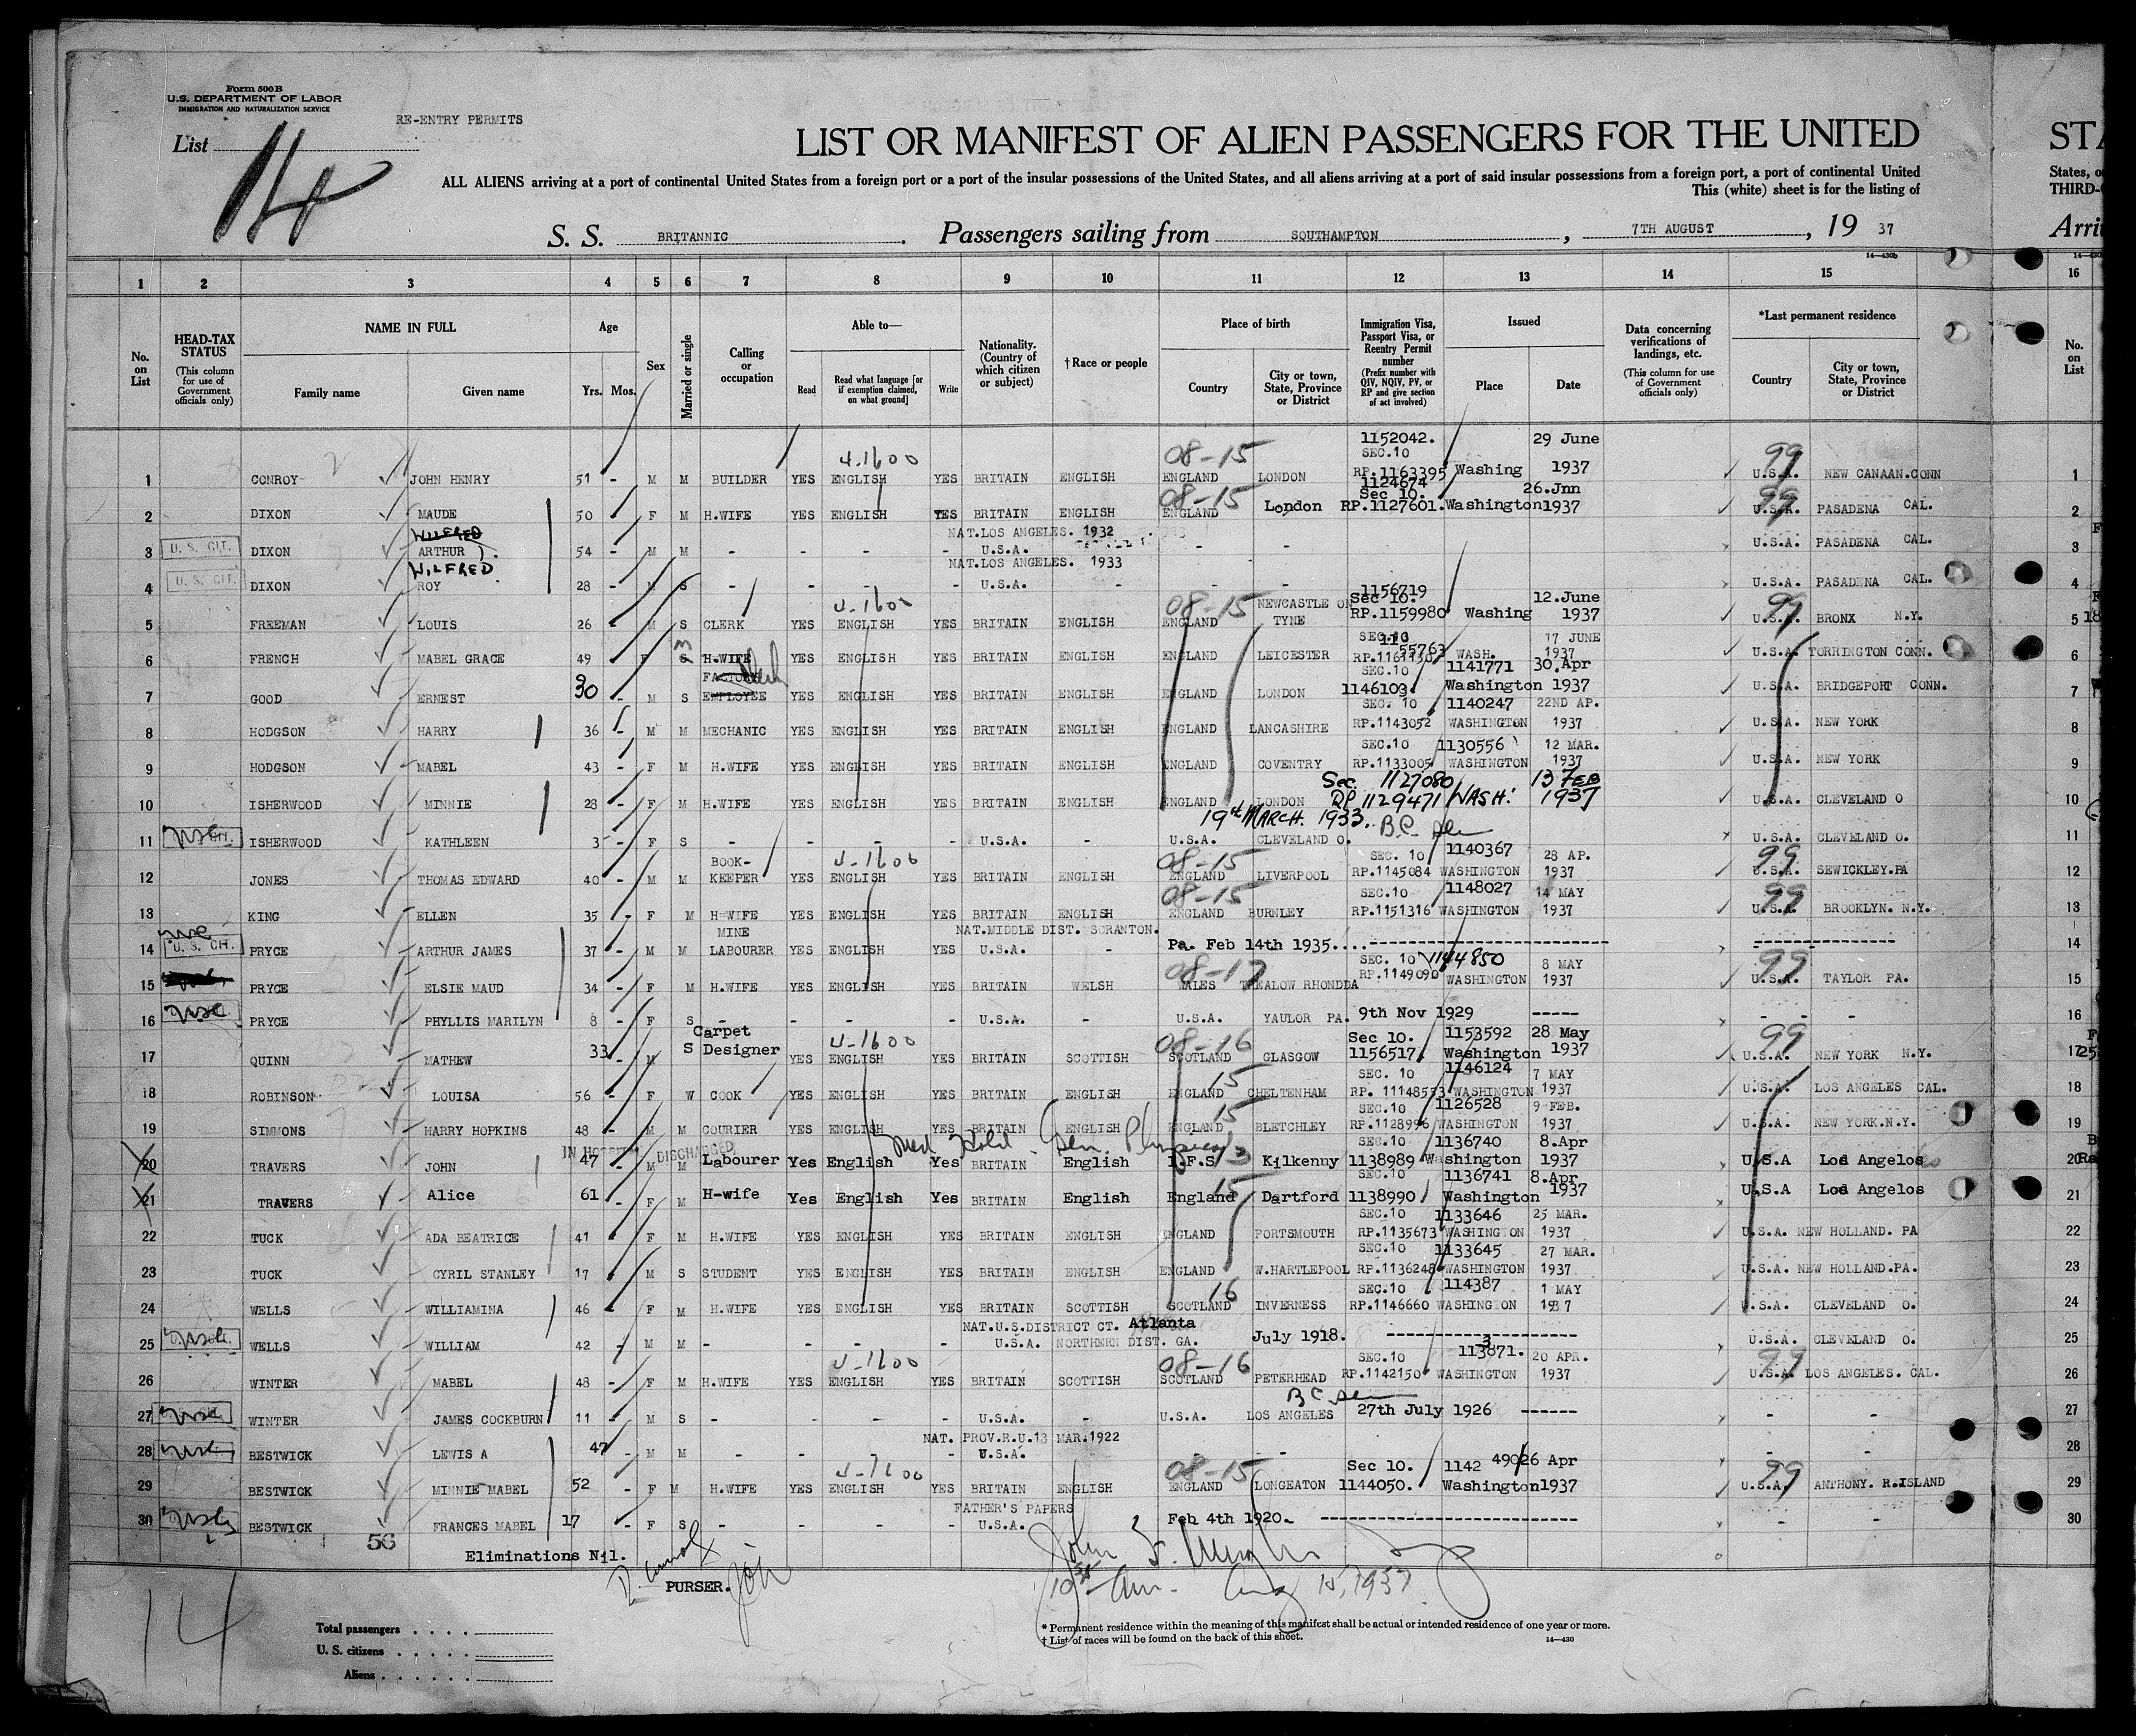 Form 500 B
U.S. DEPARTMENT OF LABOR
IMMIGRATION AND NATURALIZATION SERVICE
RE-ENTRY PERMITS
List 14
LIST OR MANIFEST OF ALIEN PASSENGERS FOR THE UNITED
ALL ALIENS arriving at a port of continental United States from a foreign port or a port of the insular possessions of the United States, and all aliens arriving at a port of said insular possessions from a foreign port, a port of continental United
This (white) sheet is for the listing of
STA
States, o
THIRD-
S. S. BRITANNIC. Passengers sailing from SOUTHAMPTON, 7TH AUGUST, 19 37
Arri
14—430b
1 2 3 4 5 6 7 8 9 10 11 12 13 14 15 16
No. on List
HEAD-TAX STATUS (This column for use of Government officials only)
NAME IN FULL Family name Given name
Age Yrs. Mos.
Sex
Married or single
Calling or occupation
Able to— Read Read what language [or if exemption claimed, on what ground] Write
Nationality. (Country of which citizen or subject)
† Race or people
Place of birth Country City or town, State, Province or District
Immigration Visa, Passport Visa, or Reentry Permit number (Prefix number with QIV, NQIV, PV, or RP and give section of act involved)
Issued Place Date
Data concerning verifications of landings, etc. (This column for use of Government officials only)
*Last permanent residence Country City or town, State, Province or District
No. on List
4-1600 08-15 1152042. SEC.10 29 June 99
1 CONROY JOHN HENRY 51 - M M BUILDER YES ENGLISH YES BRITAIN ENGLISH ENGLAND LONDON RP.1163395 Washing 1937 U.S.A. NEW CANAAN.CONN 1
08-15 1124674 Sec 10. 26.Jnn 99
2 DIXON MAUDE 50 - F M H.WIFE YES ENGLISH YES BRITAIN ENGLISH ENGLAND London RP.1127601. Washington 1937 U.S.A. PASADENA CAL. 2
WILFRED NAT.LOS ANGELES. 1932
3 U. S. CIT. DIXON ARTHUR 54 - M M - - - - U.S.A. - - U.S.A. PASADENA CAL. 3
WILFRED NAT.LOS ANGELES. 1933
4 U. S. CIT. DIXON ROY 28 - M S - - - - U.S.A. - - - U.S.A. PASADENA CAL. 4
4-1600 08-15 NEWCASTLE ON 1156719 Sec 10. 12.June 99
5 FREEMAN LOUIS 26 - M S CLERK YES ENGLISH YES BRITAIN ENGLISH ENGLAND TYNE RP.1159980 Washing 1937 U.S.A. BRONX N.Y. 5
SEC.10 17 JUNE
6 FRENCH MABEL GRACE 49 F S H.WIFE YES ENGLISH YES BRITAIN ENGLISH ENGLAND LEICESTER WASH. 1937 U.S.A. TORRINGTON CONN. 6
FACTORY SEC.10 1141771 30.Apr
7 GOOD ERNEST 30 - M S EMPLOYEE YES ENGLISH YES BRITAIN ENGLISH ENGLAND LONDON 1146103. Washington 1937 U.S.A. BRIDGEPORT CONN. 7
SEC. 10 1140247 22ND AP.
8 HODGSON HARRY 36 - M M MECHANIC YES ENGLISH YES BRITAIN ENGLISH ENGLAND LANCASHIRE RP.1143052 WASHINGTON 1937 U.S.A. NEW YORK 8
SEC.10 1130556 12 MAR.
9 HODGSON MABEL 43 - F M H.WIFE YES ENGLISH YES BRITAIN ENGLISH ENGLAND COVENTRY RP.1133005 WASHINGTON 1937 U.S.A. NEW YORK 9
Sec. 1127080 13 FEB
10 ISHERWOOD MINNIE 28 - F M H.WIFE YES ENGLISH YES BRITAIN ENGLISH ENGLAND LONDON RP 1129471 WASH: 1937 U.S.A. CLEVELAND O 10
19th MARCH. 1933. B.C.
11 ISHERWOOD KATHLEEN 3 - F S - - - - U.S.A. - U.S.A. CLEVELAND O. U.S.A. CLEVELAND O. 11
BOOK- 4-1600 08-15 SEC. 10 1140367 28 AP. 99
12 JONES THOMAS EDWARD 40 - M M KEEPER YES ENGLISH YES BRITAIN ENGLISH ENGLAND LIVERPOOL RP.1145084 WASHINGTON 1937 U.S.A. SEWICKLEY.PA 12
08-15 SEC.10 1148027 14 MAY 99
13 KING ELLEN 35 - F M H-WIFE YES ENGLISH YES BRITAIN ENGLISH ENGLAND BURNLEY RP.1151316 WASHINGTON 1937 U.S.A. BROOKLYN. N.Y. 13
MINE NAT.MIDDLE DIST. SCRANTON.
14 U. S. CIT. PRYCE ARTHUR JAMES 37 - M M LABOURER YES ENGLISH YES U.S.A. - Pa. Feb 14th 1935.... 14
08-17 SEC. 10 1144850 8 MAY 99
15 PRYCE ELSIE MAUD 34 - F M H.WIFE YES ENGLISH YES BRITAIN WELSH WALES TREALOW RHONDDA RP.1149090 WASHINGTON 1937 U.S.A. TAYLOR PA. 15
16 PRYCE PHYLLIS MARILYN 8 - F S - - - - U.S.A. - U.S.A. YAULOR PA. 9th Nov 1929 ----- - - 16
Carpet 4-1600 08-16 Sec 10. 1153592 28 May 99
17 QUINN MATHEW 33 - M S Designer YES ENGLISH YES BRITAIN SCOTTISH SCOTLAND GLASGOW 1156517. Washington 1937 U.S.A. NEW YORK N.Y. 17
15 SEC. 10 1146124 7 MAY
18 ROBINSON LOUISA 56 - F W COOK YES ENGLISH YES BRITAIN ENGLISH ENGLAND CHELTENHAM RP. 11148533 WASHINGTON 1937 U.S.A. LOS ANGELES CAL. 18
15 SEC.10 1126528 9 FEB.
19 SIMMONS HARRY HOPKINS 48 - M M COURIER YES ENGLISH YES BRITAIN ENGLISH ENGLAND BLETCHLEY RP.1128996 WASHINGTON 1937 U.S.A. NEW YORK.N.Y. 19
IN HOSPITAL DISCHARGED Med Hold. SEC.10 1136740 8.Apr
20 TRAVERS JOHN 47 - M M Labourer Yes English Yes BRITAIN English I.F.S 13 Kilkenny 1138989 Washington 1937 U.S.A Los Angelos 20
15 SEC.10 1136741 8.Apr
21 TRAVERS Alice 61 - F M H-wife Yes English Yes BRITAIN English England Dartford 1138990 Washington 1937 U.S.A Los Angelos 21
SEC.10 1133646 25 MAR.
22 TUCK ADA BEATRICE 41 - F M H.WIFE YES ENGLISH YES BRITAIN ENGLISH ENGLAND PORTSMOUTH RP.1135673 WASHINGTON 1937 U.S.A. NEW HOLLAND. PA 22
SEC.10 1133645 27 MAR.
23 TUCK CYRIL STANLEY 17 - M S STUDENT YES ENGLISH YES BRITAIN ENGLISH ENGLAND W.HARTLEPOOL RP.1136248 WASHINGTON 1937. U.S.A. NEW HOLLAND.PA. 23
16 SEC.10 114387 1 MAY
24 WELLS WILLIAMINA 46 - F M H.WIFE YES ENGLISH YES BRITAIN SCOTTISH SCOTLAND INVERNESS RP.1146660 WASHINGTON 1937 U.S.A. CLEVELAND O. 24
NAT.U.S.DISTRICT CT. Atlanta
25 WELLS WILLIAM 42 - M M - - - - U.S.A. NORTHERN DIST. GA. July 1918. U.S.A. CLEVELAND O. 25
4-1600 08-16 SEC.10 3 113871. 20 APR. 99
26 WINTER MABEL 48 - F M H.WIFE YES ENGLISH YES BRITAIN SCOTTISH SCOTLAND PETERHEAD RP.1142150 WASHINGTON 1937 U.S.A. LOS ANGELES. CAL. 26
B C
27 WINTER JAMES COCKBURN 11 - M S - - - - U.S.A. - U.S.A. LOS ANGELES 27th July 1926 ------ - - 27
NAT. PROV.R.U.13 MAR.1922
28 BESTWICK LEWIS A 47 - M M - - - - U.S.A. - - - - 28
4-1600 08-15 Sec 10. 1142 490 26 Apr 99
29 BESTWICK MINNIE MABEL 52 - F M H.WIFE YES ENGLISH YES BRITAIN ENGLISH ENGLAND LONGEATON 1144050. Washington 1937 U.S.A. ANTHONY. R.ISLAND 29
FATHER'S PAPERS
30 BESTWICK FRANCES MABEL 17 - F S - - - - U.S.A. Feb 4th 1920. - - 30
56
Eliminations Nil.
PURSER.
Aug 15, 1937
14
Total passengers . . . .
U. S. citizens . . . . .
Aliens . . . . . .
* Permanent residence within the meaning of this manifest shall be actual or intended residence of one year or more.
† List of races will be found on the back of this sheet.
14—430